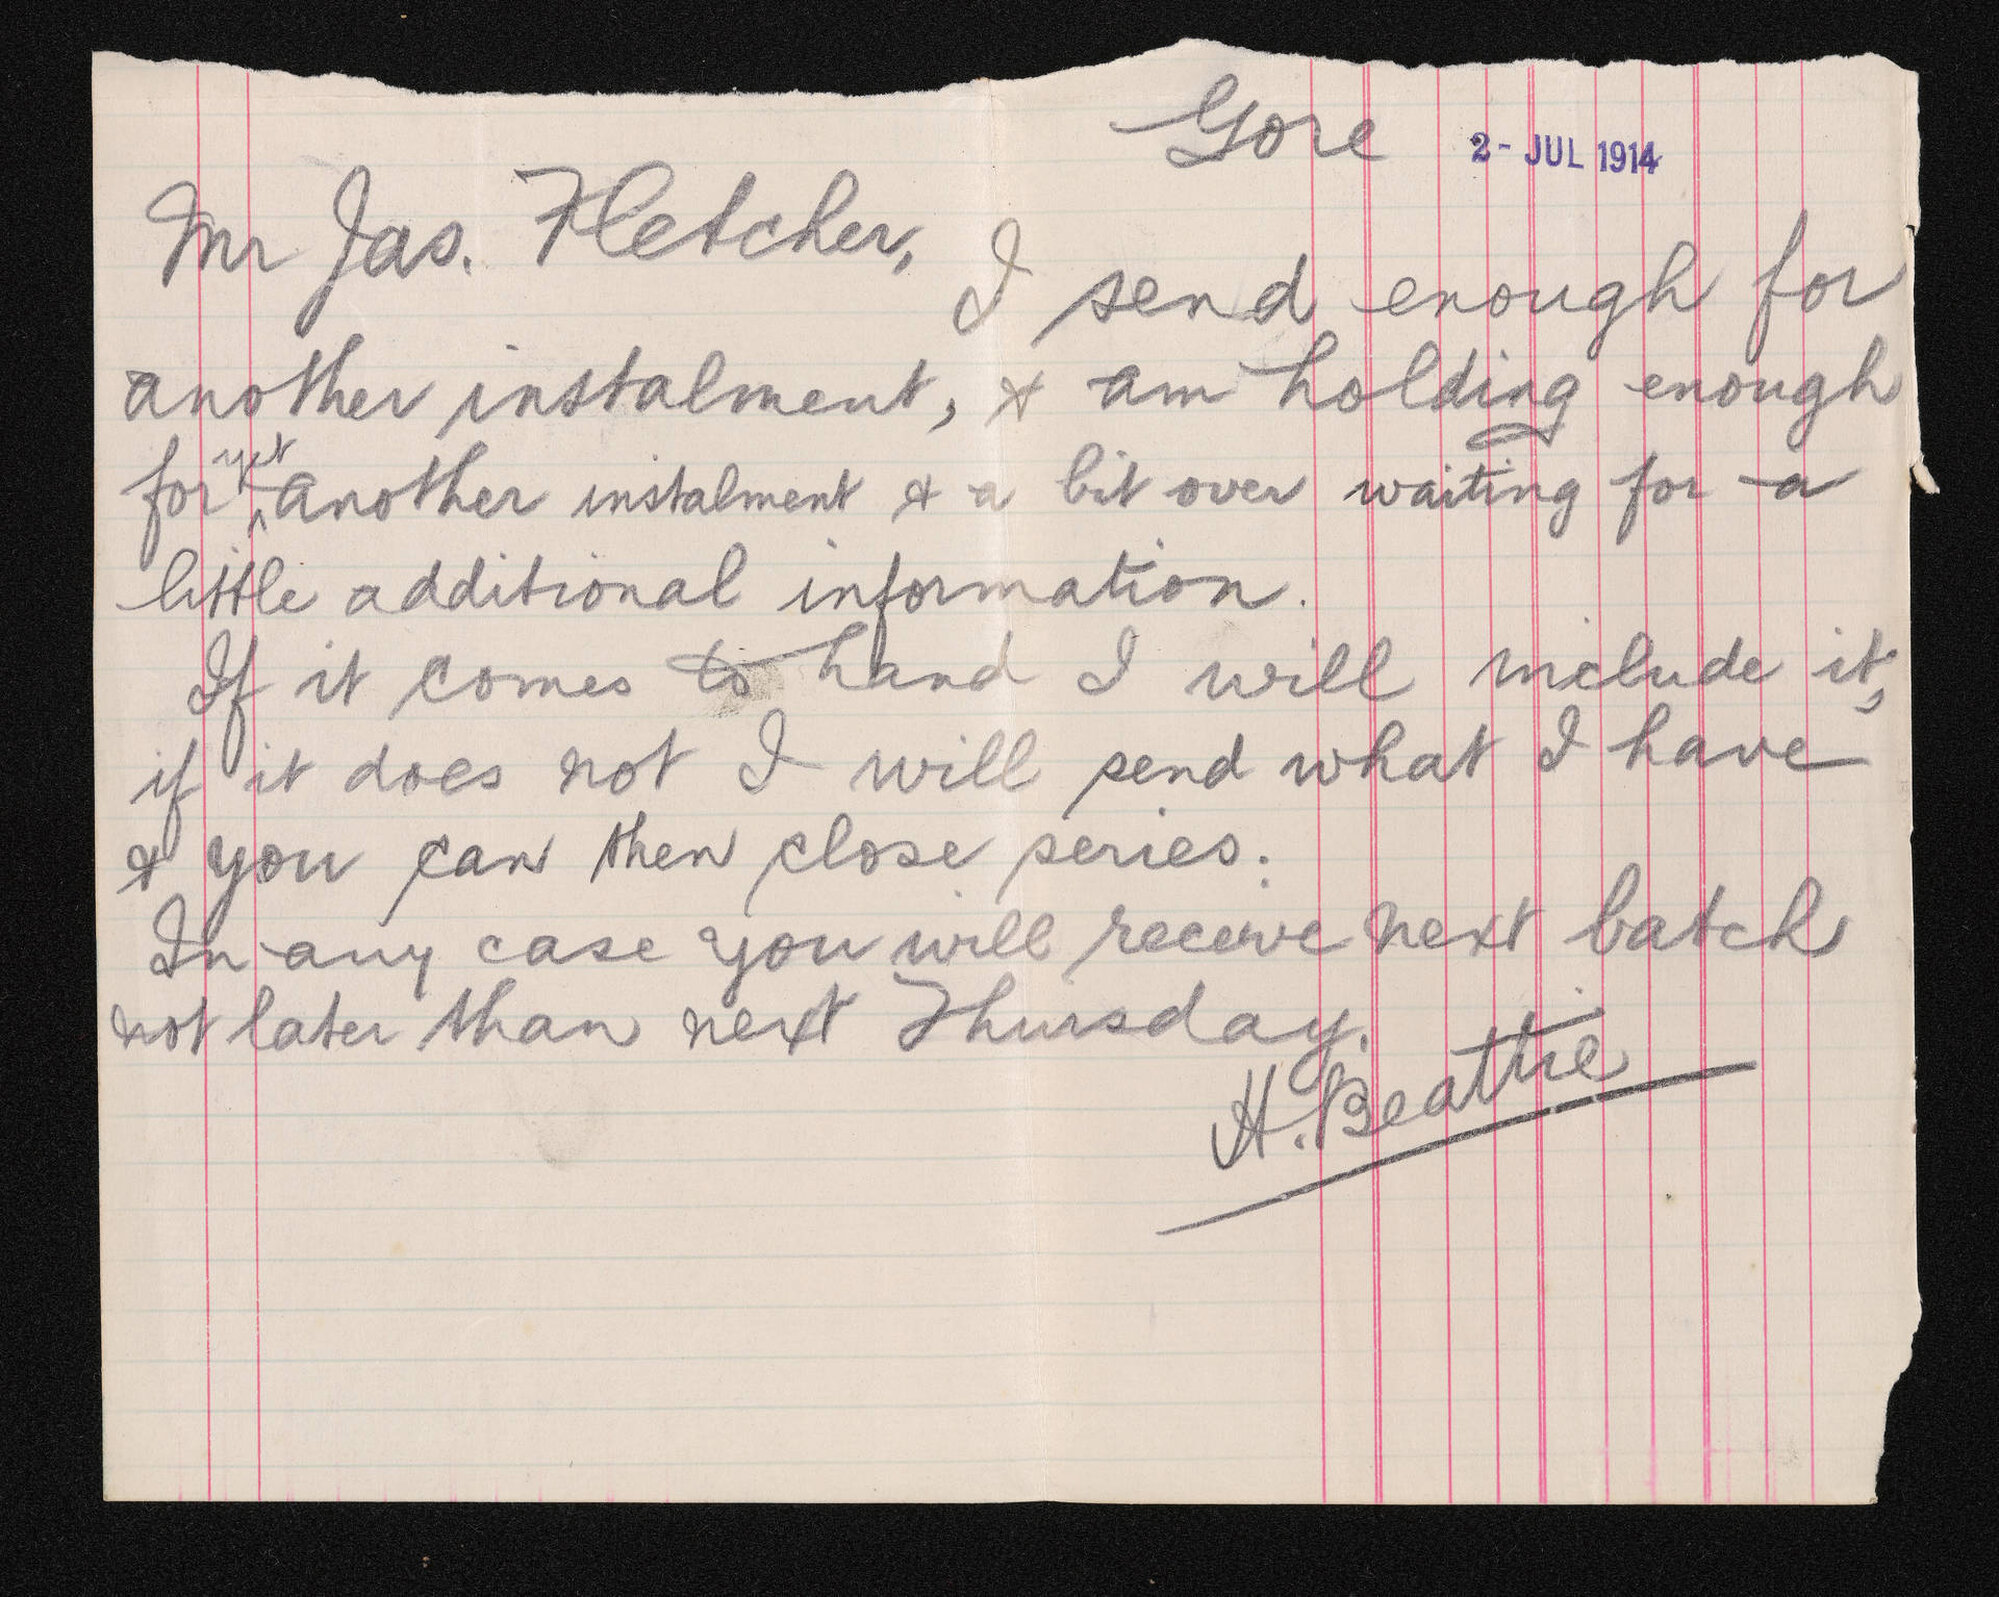 Gore 2- JUL 1914
Mr Jas. Fletcher,
I send enough for
another instalment, & am holding enough
for yet another instalment & a bit over waiting for a
little additional information.
If it comes to hand I will include it,
if it does not I will send what I have
& you can then close series.
In any case you will receive next batch
not later than next Thursday.
H. Beattie